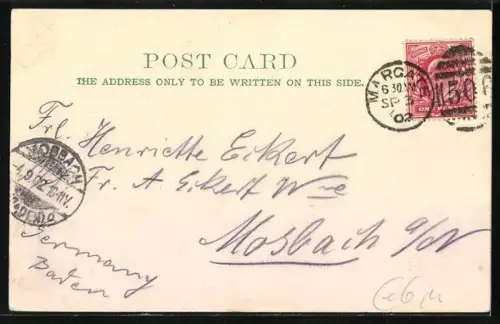 POST CARD
THE ADDRESS ONLY TO BE WRITTEN ON THIS SIDE.
MARGATE
6 30
SP 3
02
Frl. Henriette Eckert
Fr. A Eckert Wwe
Mosbach a/N
Germany
Baden
MOSBACH
4.9.02.10-11V.
(BADEN)